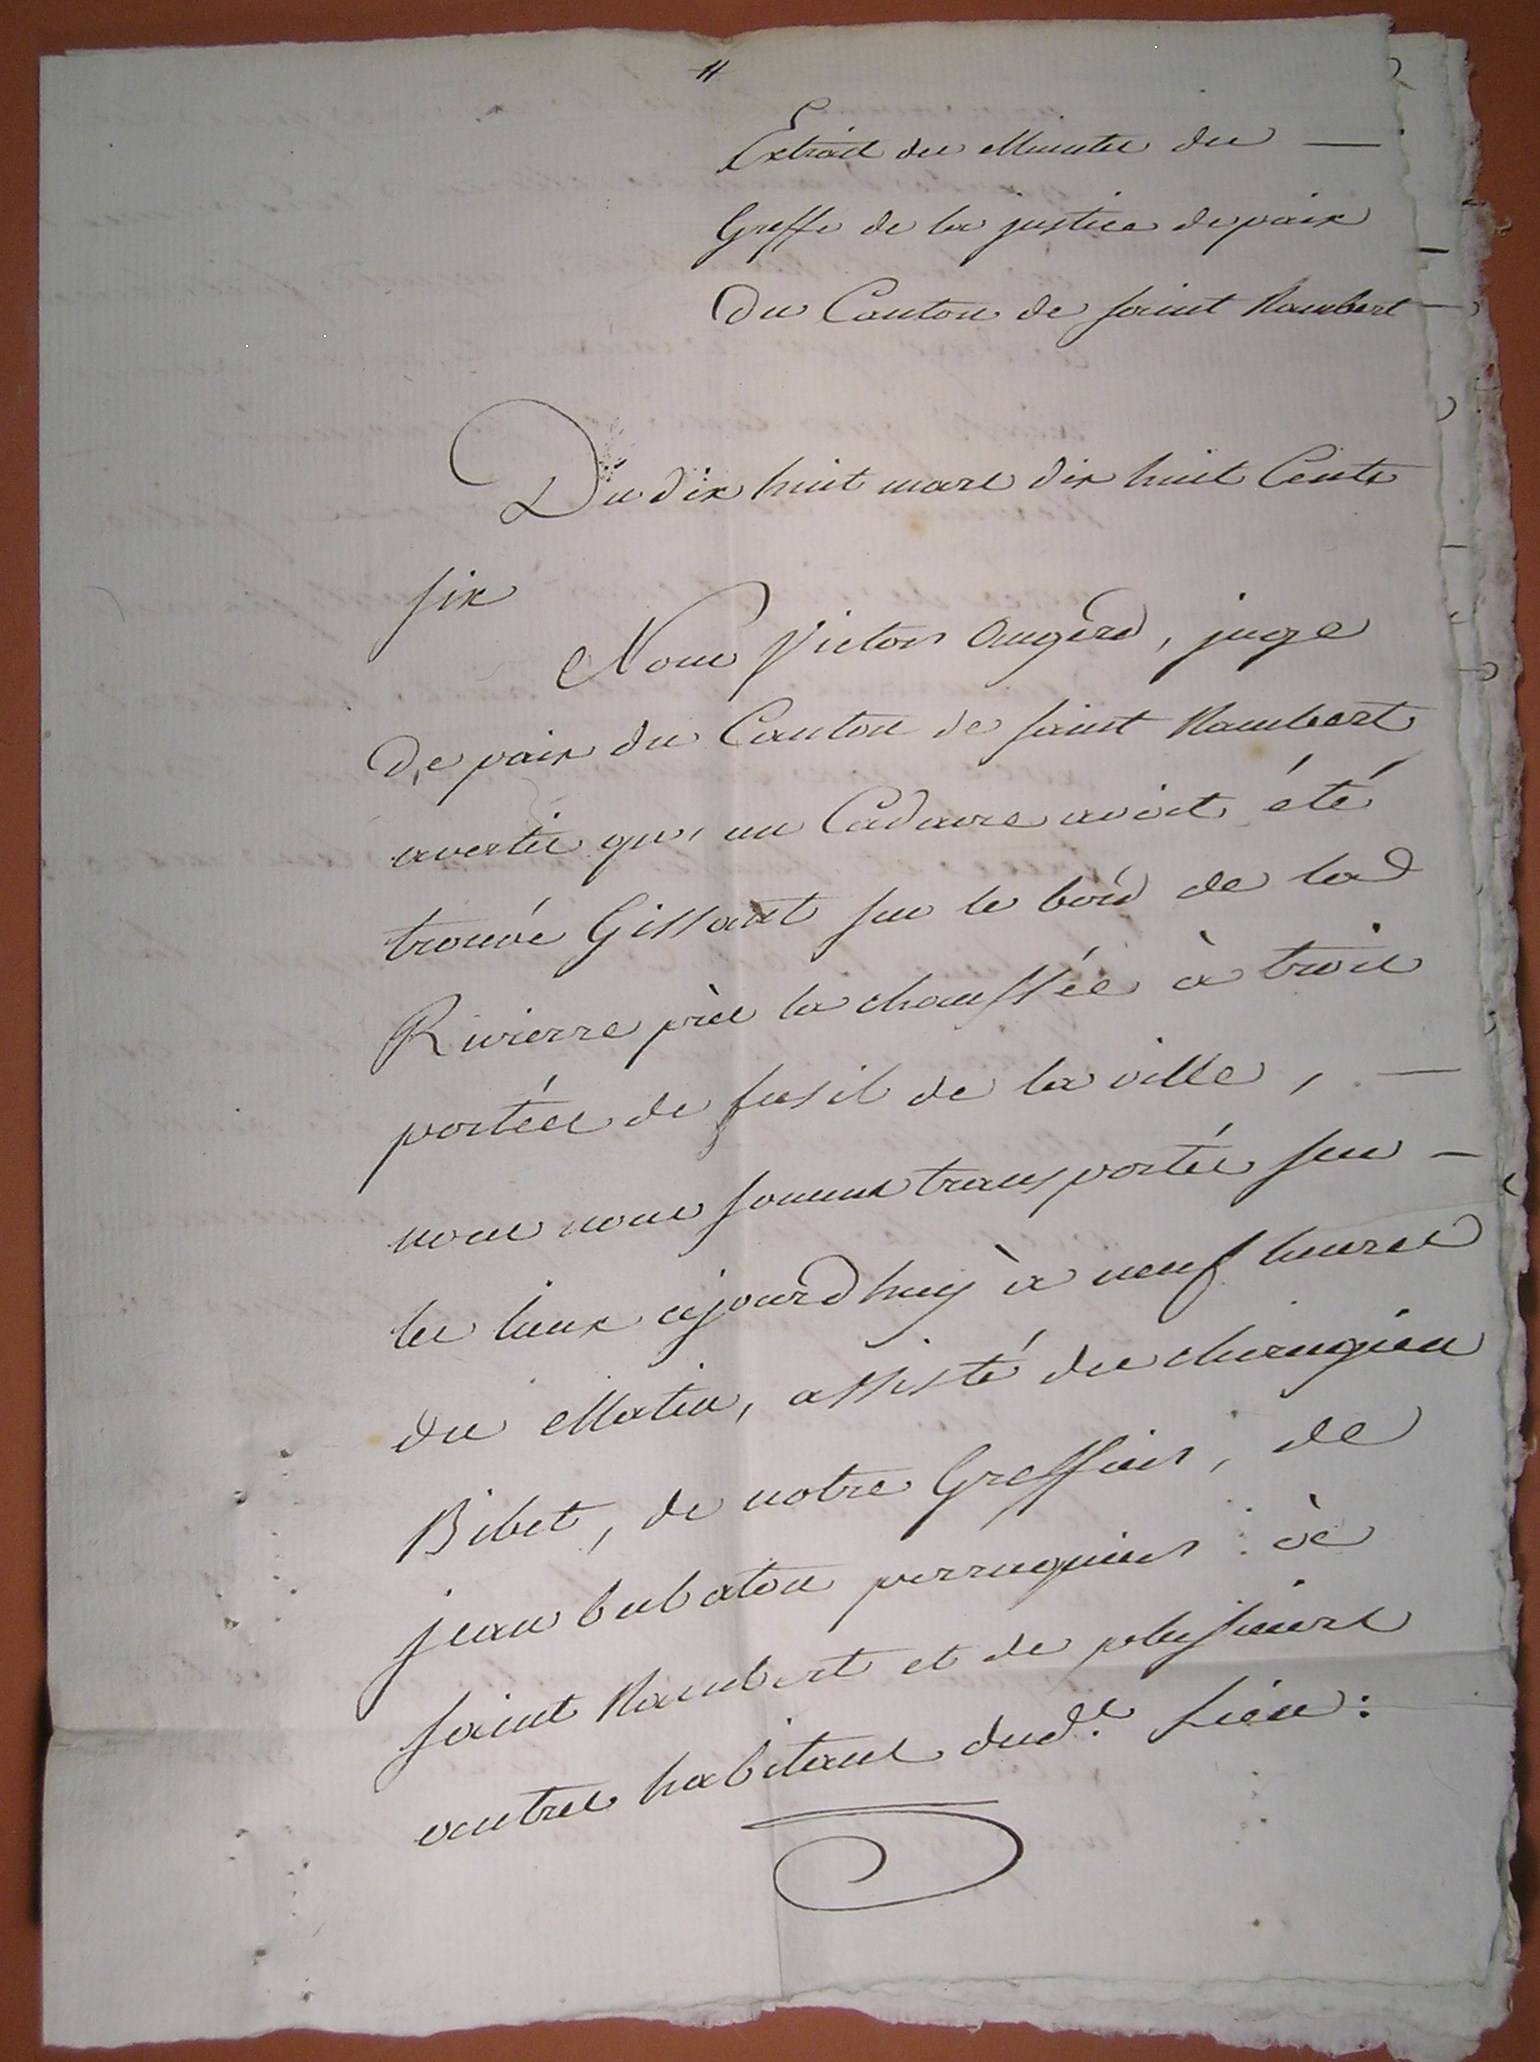 Extrait des Minutes du —
Greffe de la justice de paix
Du Canton de saint Rambert —
Du dix huit mars dix huit Cents
six
Nous Victor Augerd, juge
De paix du Canton de saint Rambert
avertis qu'un Cadavre avoit été
trouvé Gissant sur le bord de la
Rivierre près la chaussée à trois
portées de fusil de la ville, —
nous nous sommes transportés sur —
les lieux ajourd huy à neuf heures
du Matin, assisté du chirurgien
Bibet, de notre Greffier, de
jean bubaton perruquier à
saint Rambert et de plusieurs
autres habitans dud.t Lieu: